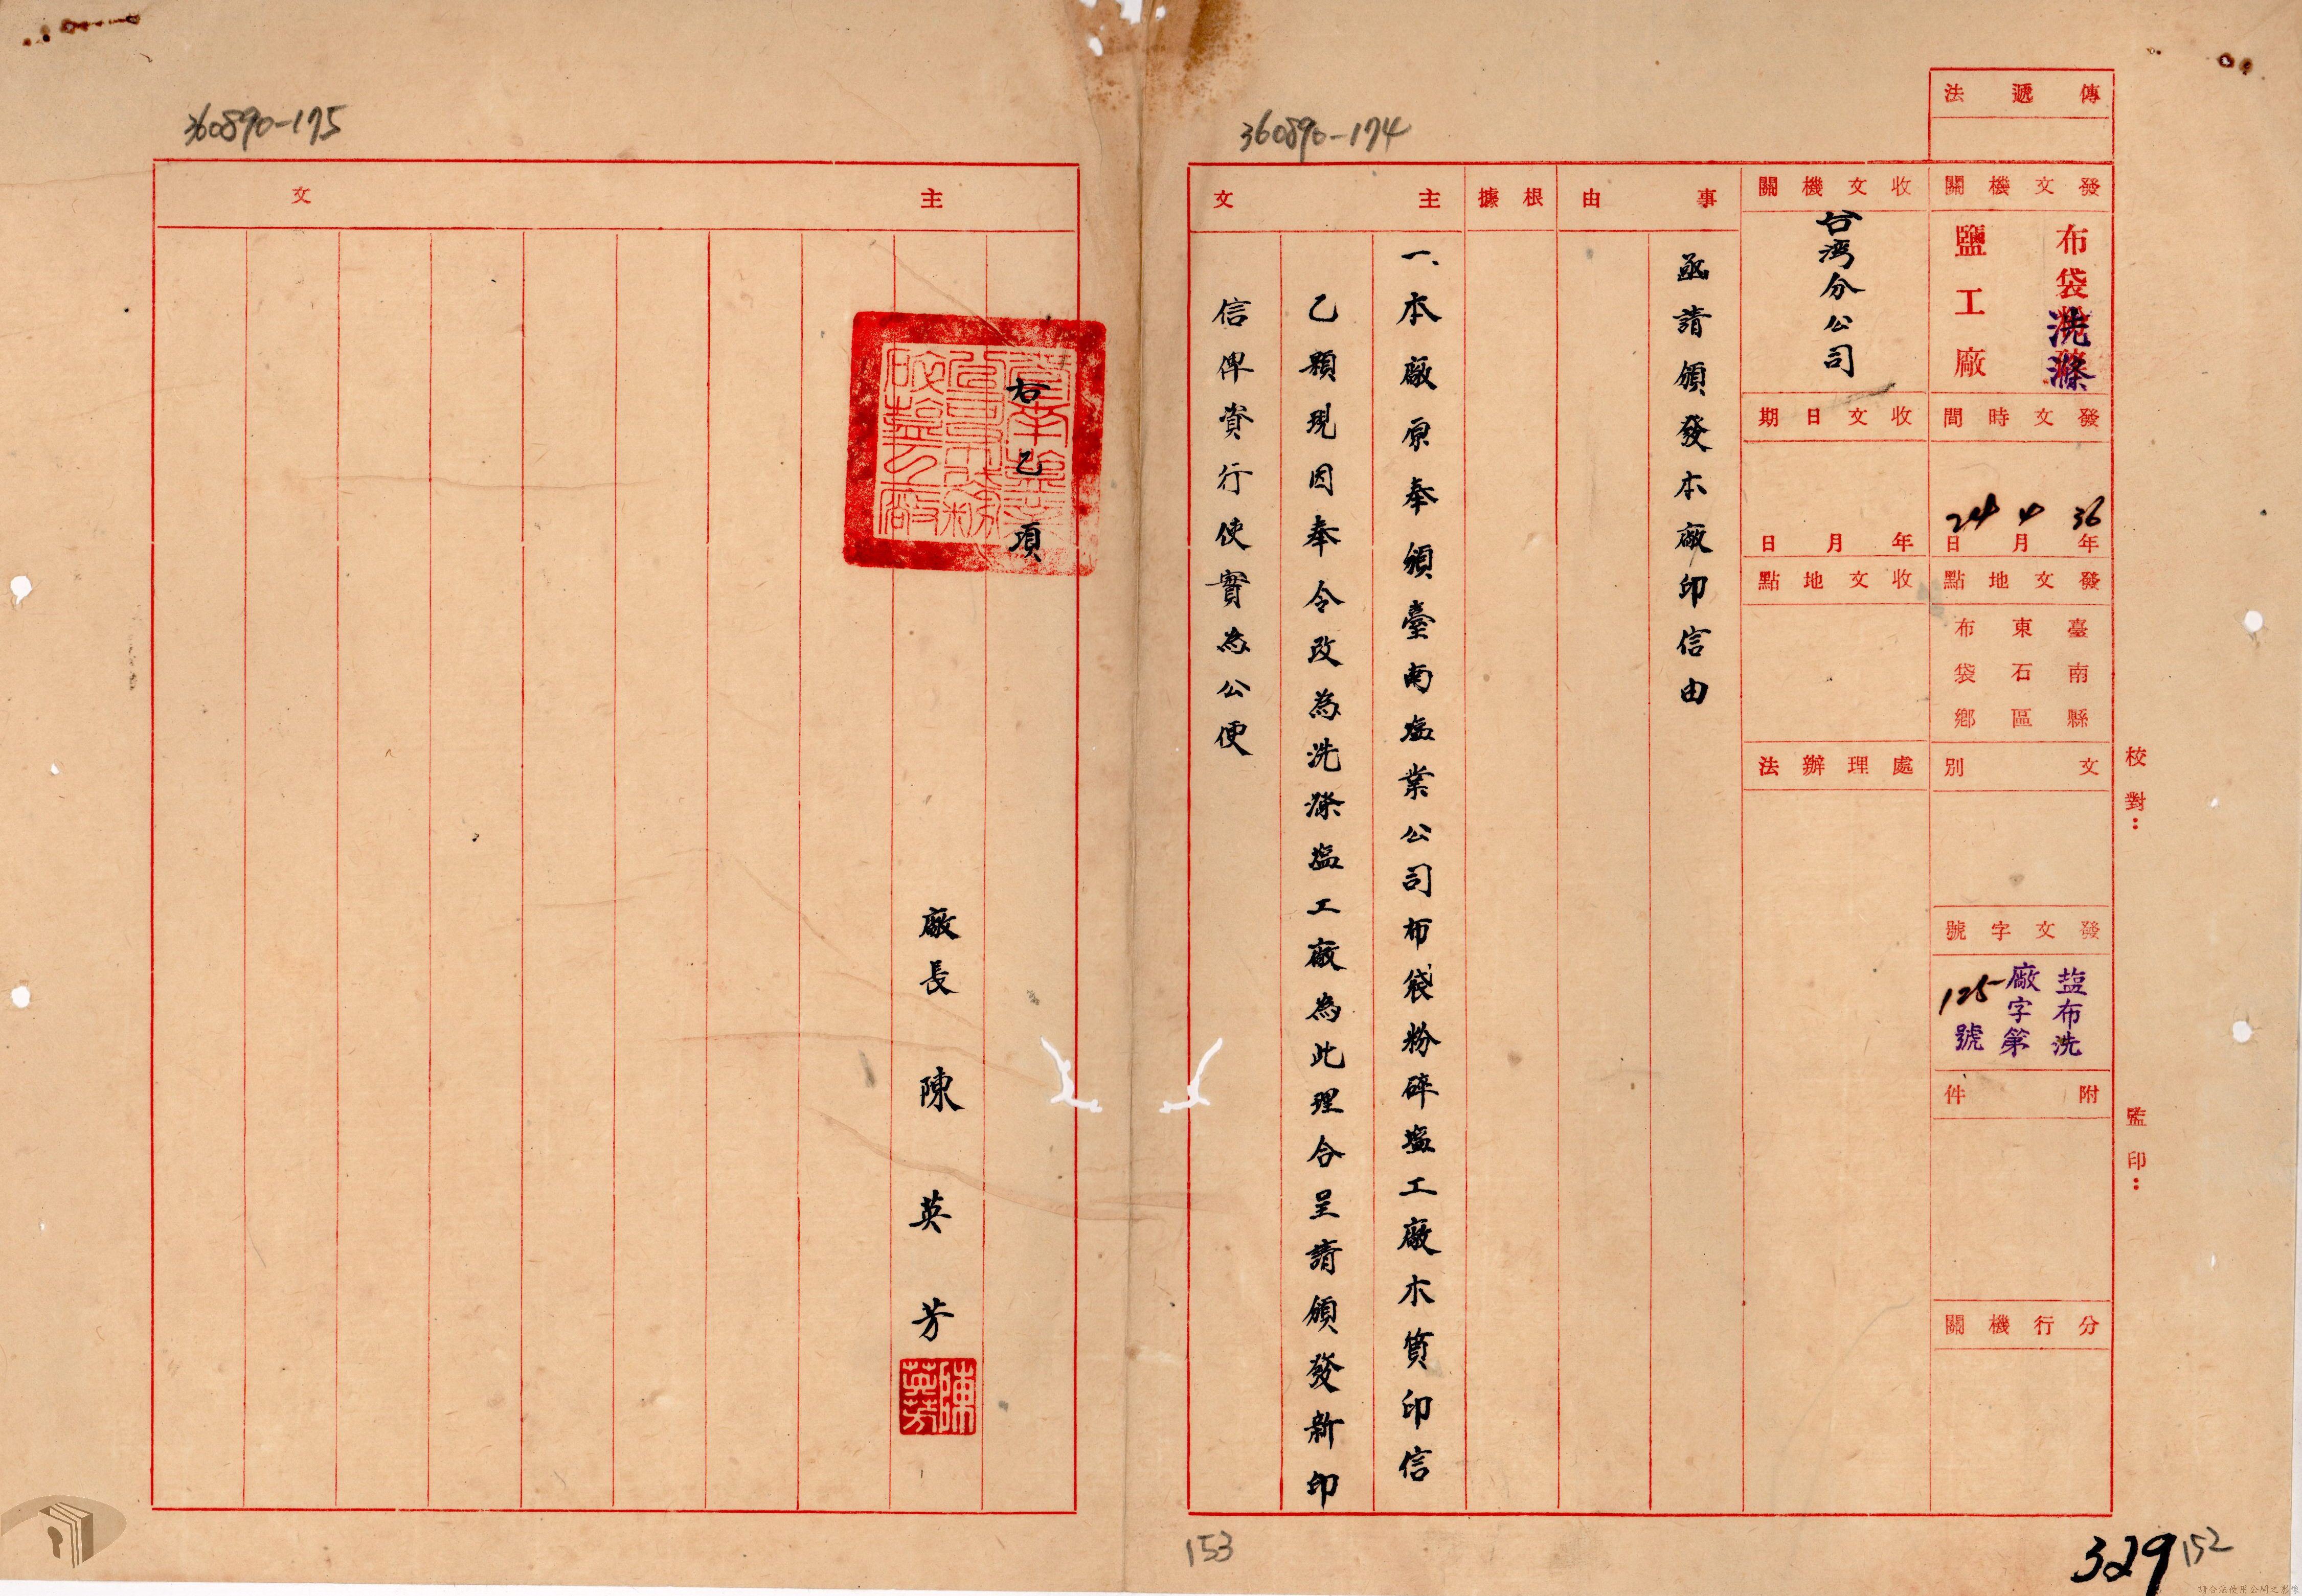 360890-174
傳遞法
發文機關
布袋洗滌
鹽工廠
發文時間
36年4月24日
發文地點
臺南縣
東石區
布袋鄉
文別
發文字號
塩布洗
廠字第
125號
附件
分行機關
收文機關
台湾分公司
收文日期
年月日
收文地點
處理辦法
事由
函請頒發本廠印信由
根據
主文
一、本廠原奉頒臺南塩業公司布袋粉碎塩工廠木質印信
乙顆現因奉令改為洗滌塩工廠為此理合呈請頒發新印
信俾資行使實為公便
校對：
監印：
329
152
153
360890-175
主文
右乙項
廠長陳英芳
陳英芳
請合法使用公開之影像